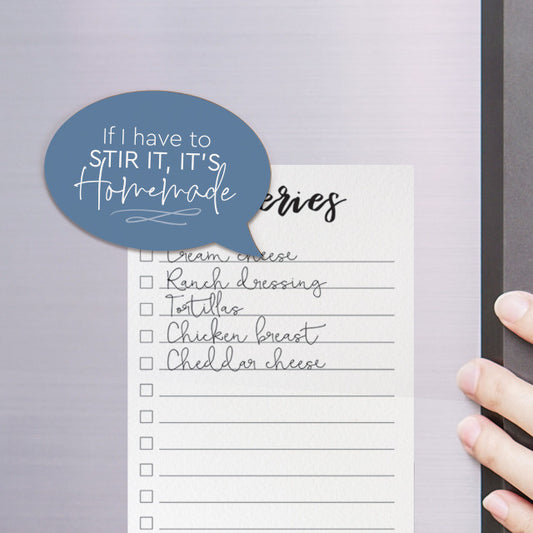 If I have to
STIR IT, IT'S
Homemade
eries
Cream cheese
Ranch dressing
Tortillas
Chicken breast
Cheddar cheese